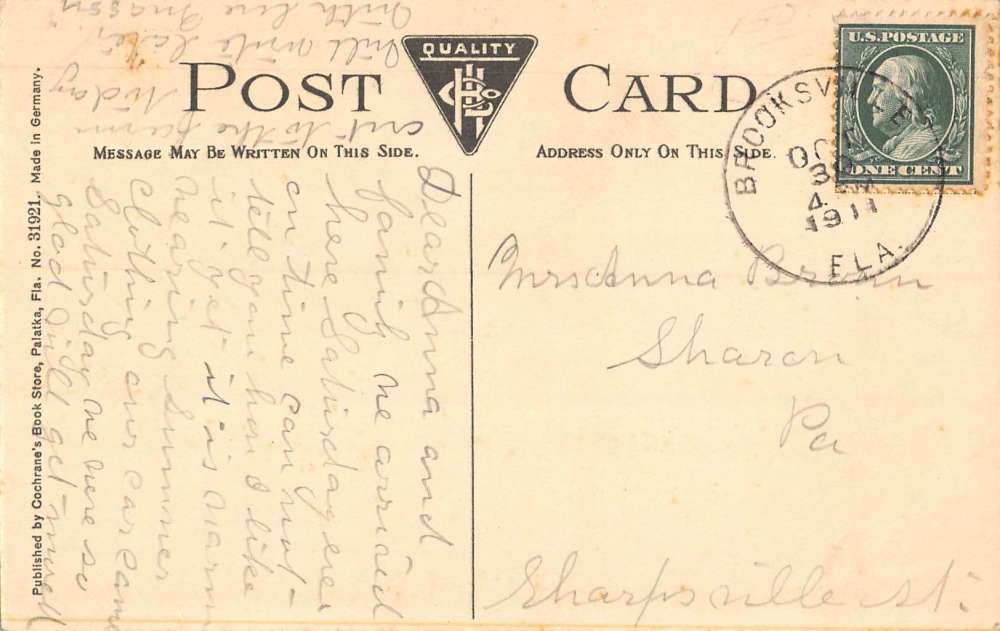 POST CARD
QUALITY
MESSAGE MAY BE WRITTEN ON THIS SIDE.
ADDRESS ONLY ON THIS SIDE.
U.S. POSTAGE
ONE CENT
BROOKSVILLE
OCT
30
4
1911
FLA.
Published by Cochrane's Book Store, Palatka, Fla. No. 31921. Made in Germany.
Dear Anna and
family we arrived
here Saturday eve
on time can not
tell you how I like
it yet it is warm
wearing summer
clothing our car came
Saturday we were so
glad will get moved
out to the farm
today
will write later
with love
Mrs Anna Brown
Sharon
Pa
Sharpsville St.